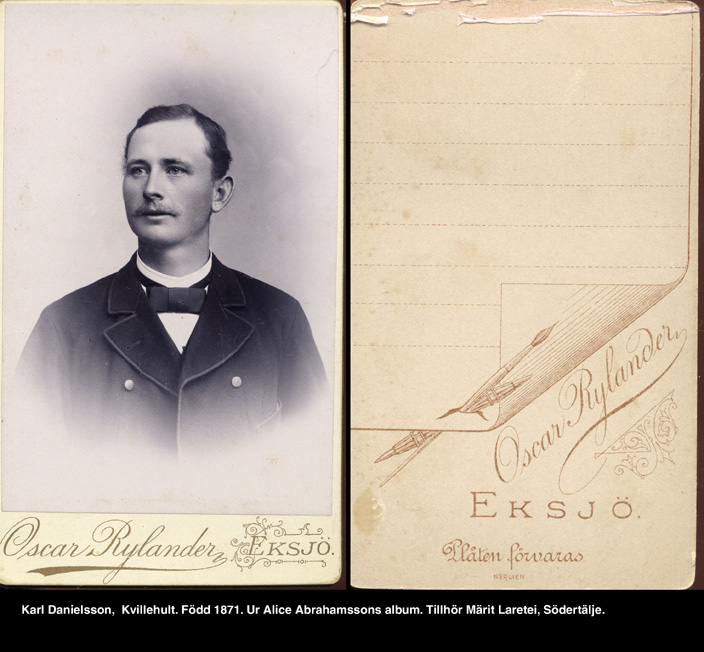 Oscar Rylander, EKSJÖ.
Oscar Rylander
EKSJÖ.
Plåten förvaras
Karl Danielsson, Kvillehult. Född 1871. Ur Alice Abrahamssons album. Tillhör Märit Laretei, Södertälje.